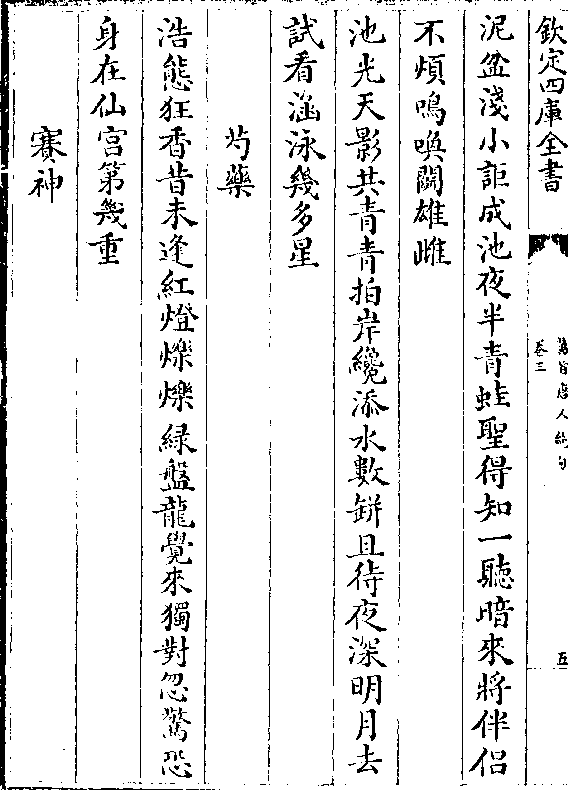 欽定四庫全書
萬首唐人絶句
卷三
五
泥盆淺小詎成池夜半青蛙聖得知一聽暗來將伴侣
不煩鳴喚鬭雄雌
池光天影共青青拍岸纔添水數缾且待夜深明月去
試看涵泳幾多星
芍藥
浩態狂香昔未逢紅燈爍爍緑盤龍覺來獨對忽驚恐
身在仙宫第幾重
賽神